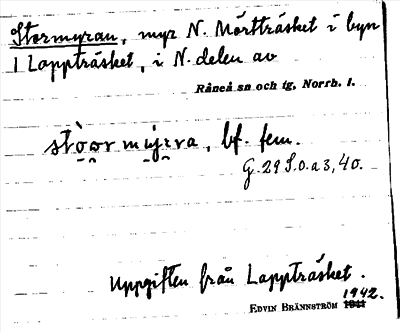 Stormyran, myr N. Mörtträsket i byn
Lappträsket, i N. delen av
Råneå sn och tg, Norrb. l.
bf. fem.
G. 29 S.o.a 3, 40.
Uppgiften från Lappträsket.
1942.
EDVIN BRÄNNSTRÖM 1941